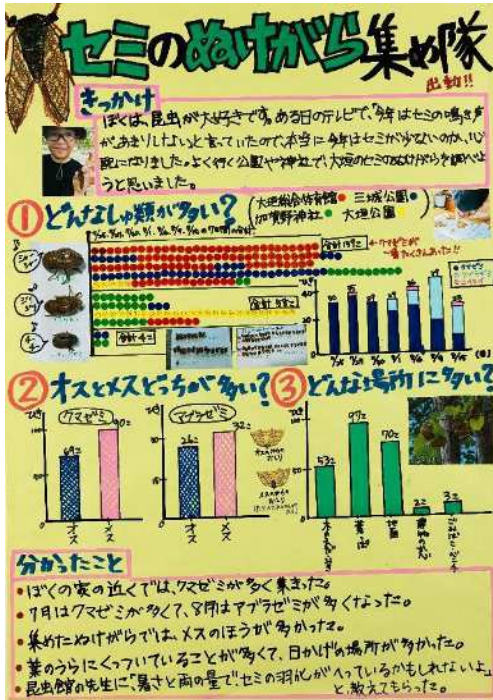 セミのぬけがら集め隊
出動!!
きっかけ
ぼくは、昆虫が大好きです。ある日のテレビで、「今年はセミの鳴き声
があまりしない」と言っていたので、本当に今年はセミが少ないのか、心
配になりました。よく行く公園や神社で、大垣のセミのぬけがらを調べよ
うと思いました。
① どんなしゅ類が多い?
大垣総合体育館 三城公園
加賀野神社 大垣公園
クマゼミが
一番たくさんあった!!
合計58こ
合計4こ
② オスとメスどっちが多い?
クマゼミ
69こ
90こ
オス
メス
アブラゼミ
26こ
32こ
オス
メス
③ どんな場所に多い?
53こ
97こ
70こ
2こ
3こ
葉っぱ
地面
分かったこと
・ぼくの家の近くでは、クマゼミが多く集まった。
・7月はクマゼミが多くて、8月はアブラゼミが多くなった。
・集めたぬけがらでは、メスのほうが多かった。
・葉のうらにくっついていることが多くて、日かげの場所が多かった。
・昆虫館の先生に「暑さと雨の量で、セミの羽化がへっているかもしれないよ」
と教えてもらった。